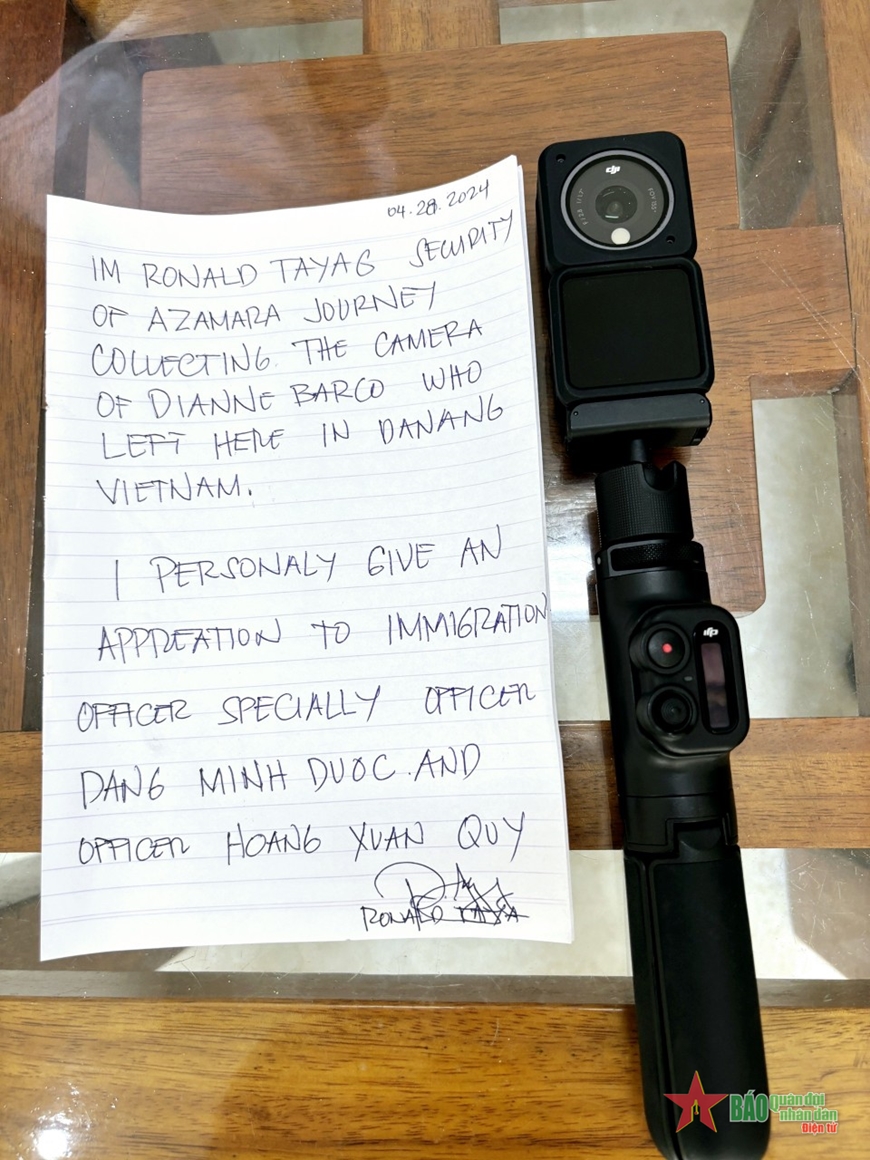 04.28.2024
IM RONALD TAYAG SECURITY
OF AZAMARA JOURNEY
COLLECTING THE CAMERA
OF DIANNE BARCO WHO
LEFT HERE IN DANANG
VIETNAM.
I PERSONALY GIVE AN
APPREATION TO IMMIGRATION
OFFICER SPECIALLY OFFICER
DANG MINH DUOC AND
OFFICER HOANG XUAN QUY
RONALD
dji
dji
BÁO quân đội
nhân dân
Điện tử